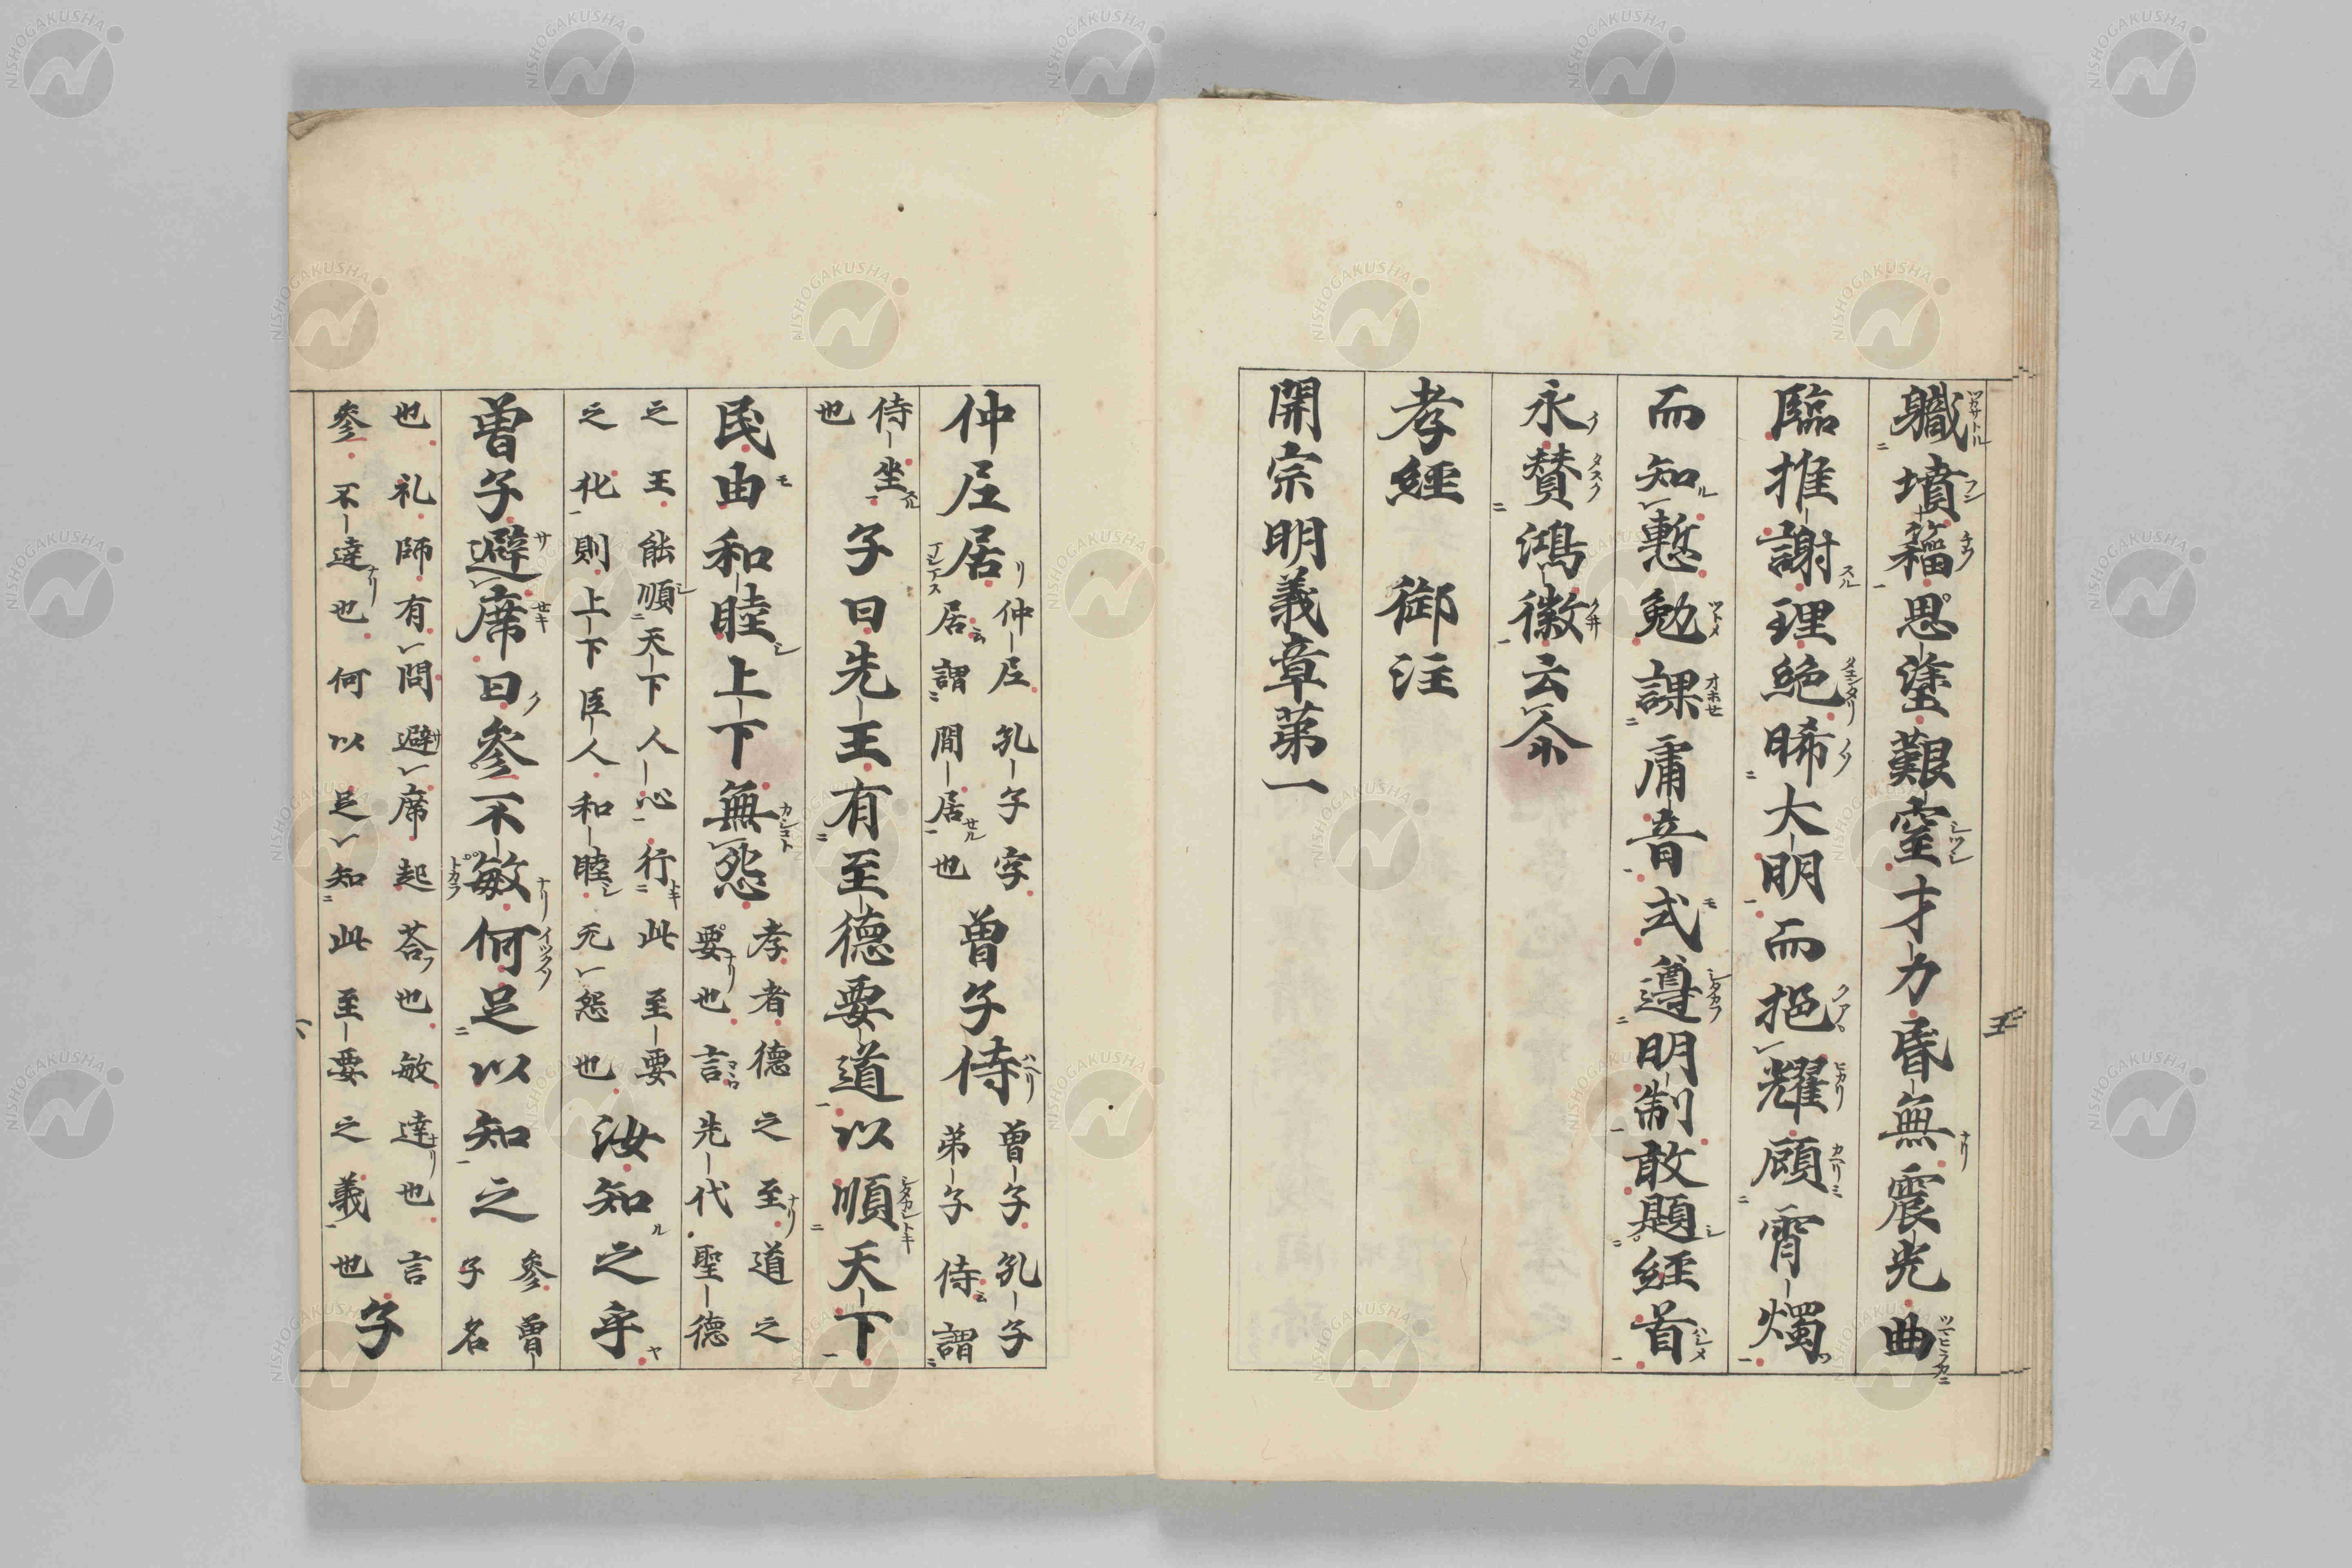 職墳籕思塗艱窒才力昏無震光曲
臨推謝理絶晞大明而挹耀顧霄燭
而知慙勉課庸音式遵明制敢題経首
永賛鴻徽云尒
孝經 御注
開宗明義章苐一
五
仲𡰱居
仲𡰱孔子字
居謂閒居也
曽子侍
曽子孔子
弟子侍謂
侍坐
也
子曰先王有至德要道以順天下
民由和睦上下無怨
孝者德之至道之
要也言先代聖德
之王能順天下人心行此至要
之化則上下臣人和睦无怨也
汝知之乎
曽子避席曰參不敏何足以知之
參曽
子名
也礼師有問避席起荅也敏達也言
參不達也何以足知此至要之義也
子
六
NISHOGAKUSHA